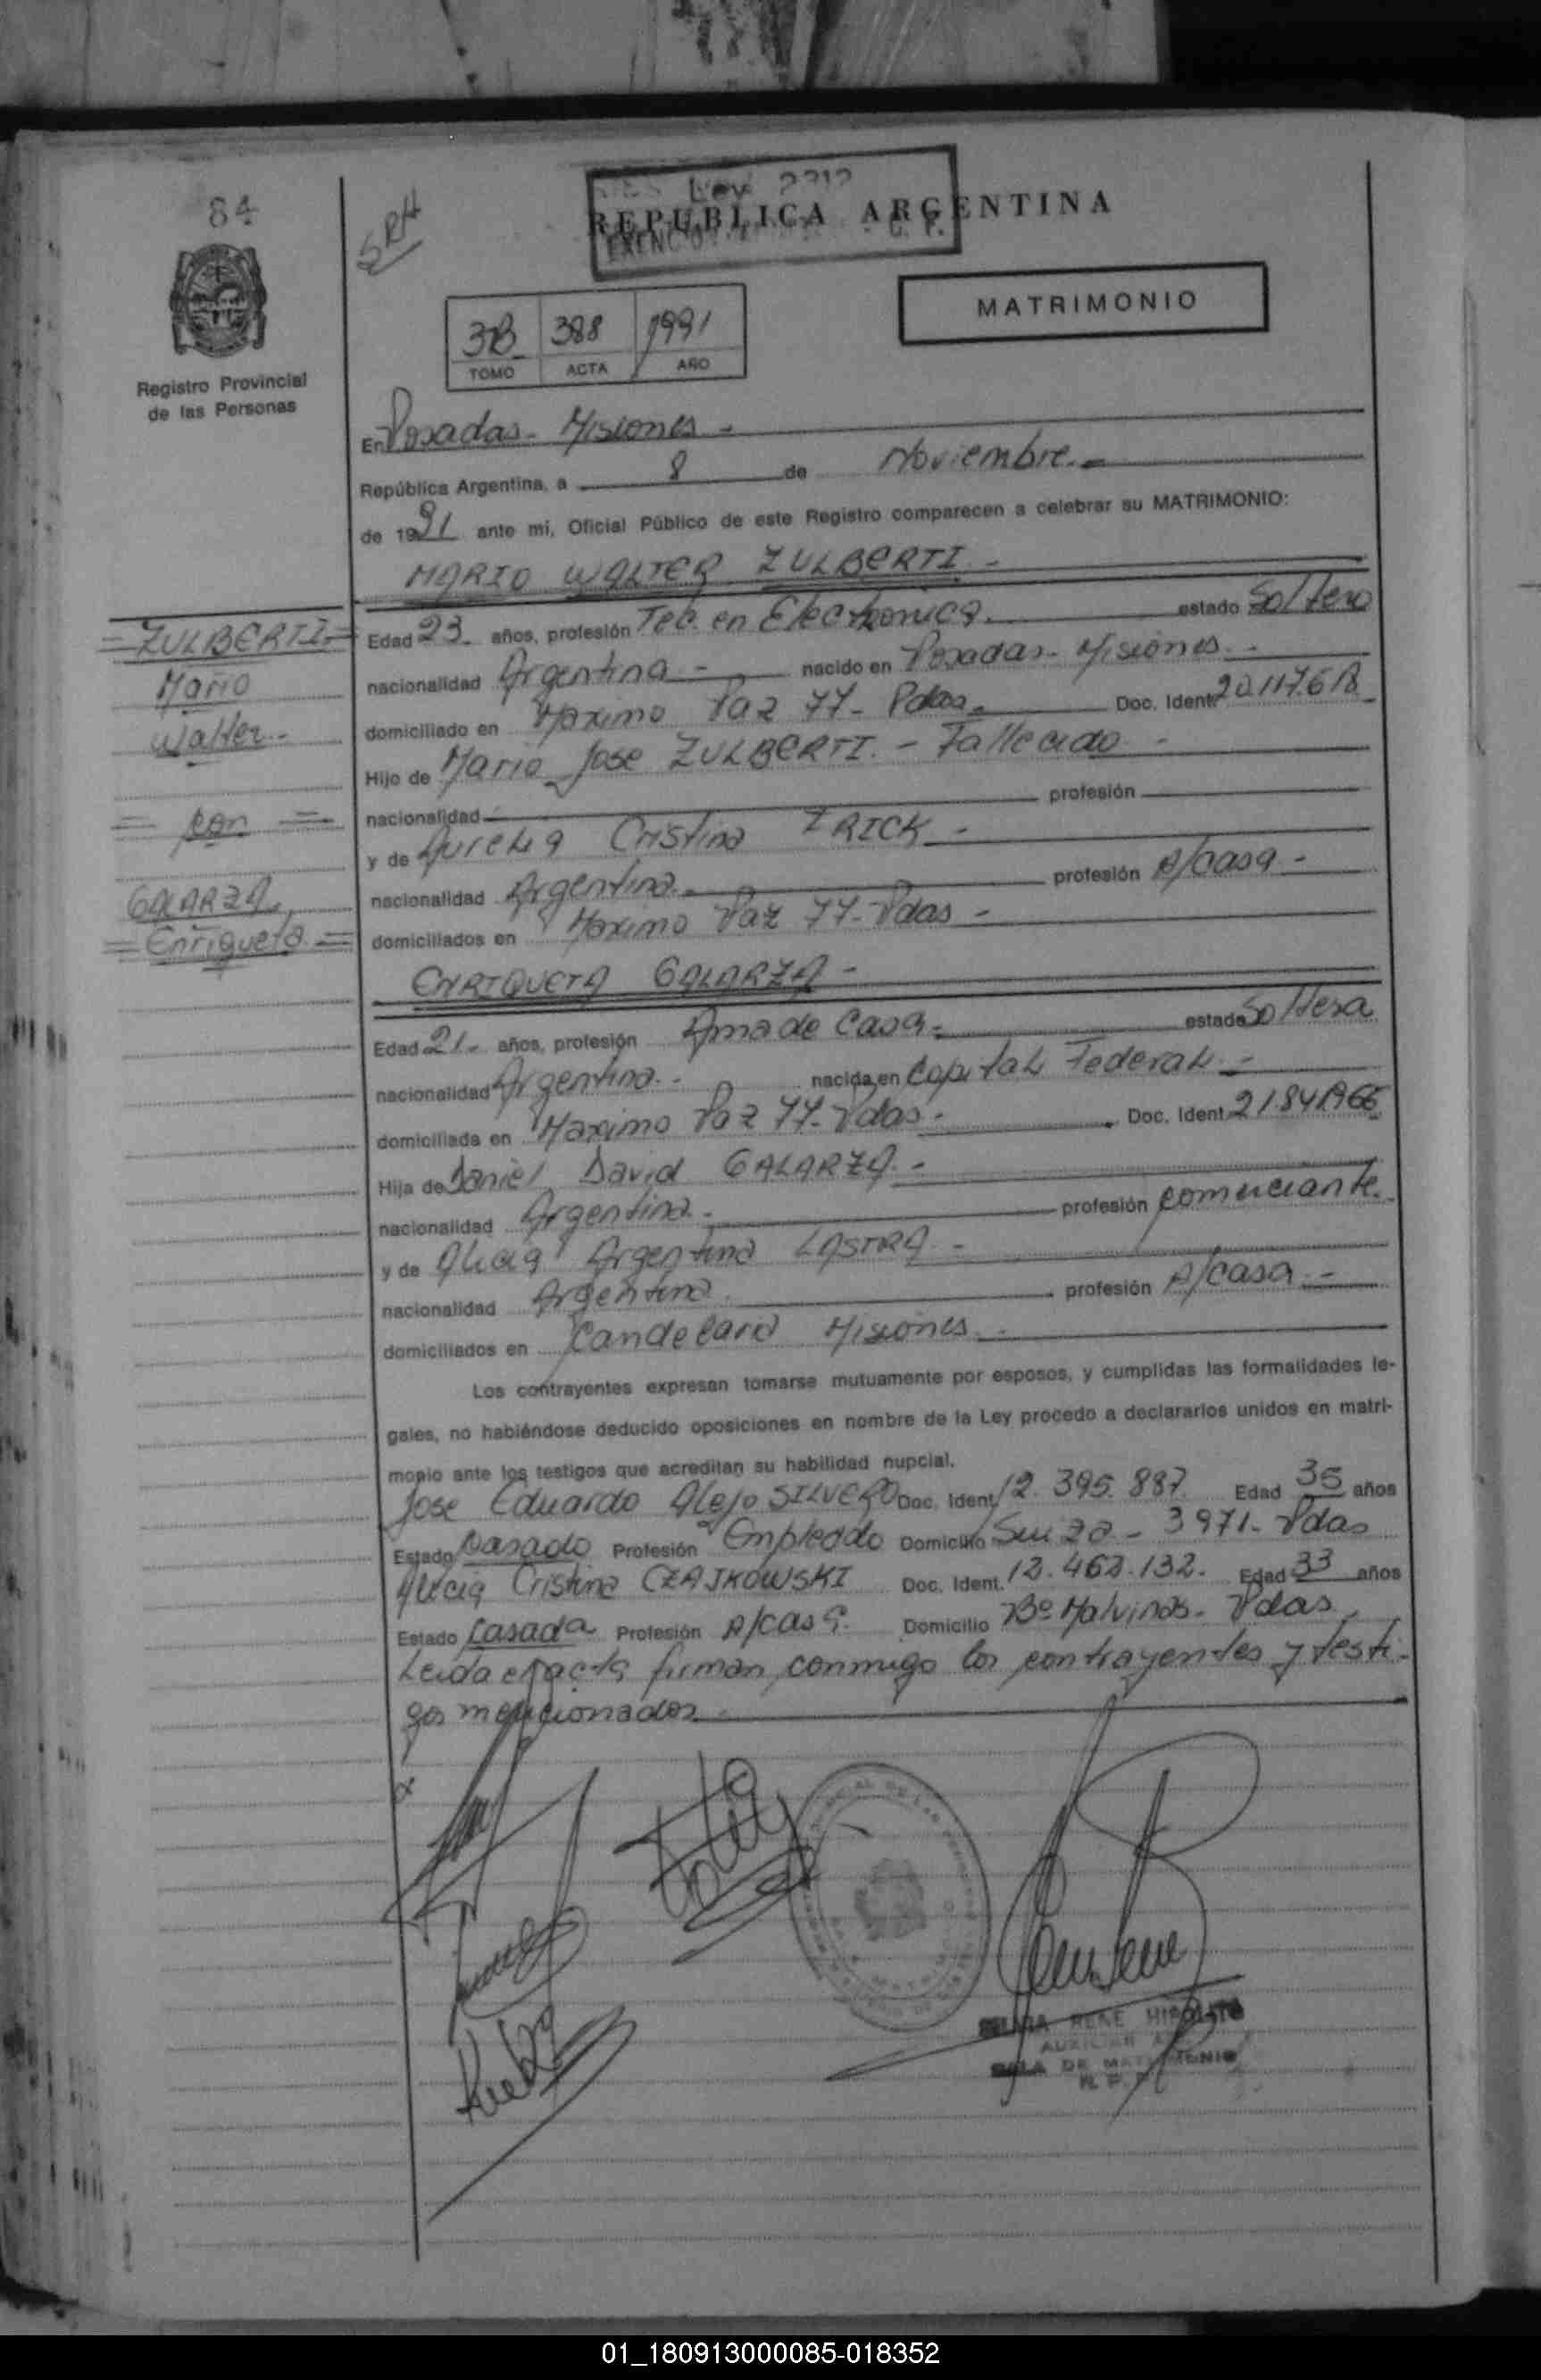 84
SRH
Ley 2312
REPUBLICA ARGENTINA
EXENC
C. F.
MATRIMONIO
3B 388 1991
TOMO ACTA AÑO
Registro Provincial
de las Personas
En Posadas - Misiones -
República Argentina, a 8 de Noviembre.-
de 1991 ante mi, Oficial Público de este Registro comparecen a celebrar su MATRIMONIO:
MARIO WALTER ZULBERTI.-
= ZULBERTI =
Mario
Walter.-
= con =
GALARZA,
= Enriqueta. =
Edad 23. años, profesión Tec. en Electronica. estado Soltero
nacionalidad Argentina - nacido en Posadas - Misiones.-
domiciliado en Maximo Paz 77- Pdas. Doc. Ident. 20.117.618
Hijo de Mario Jose ZULBERTI. - Fallecido -
nacionalidad profesión
y de Aurelia Cristina IRICK -
nacionalidad Argentina.- profesión A/casa -
domiciliados en Maximo Paz 77- Pdas -
ENRIQUETA GALARZA -
Edad 21.- años, profesión Ama de Casa.- estado Soltera
nacionalidad Argentina.- nacida en Capital Federal.-
domiciliada en Maximo Paz 77- Pdas - Doc. Ident.
Hija de Daniel David GALARZA.-
nacionalidad Argentina.- profesión comerciante.
y de Alicia Argentina LASTRA -
nacionalidad Argentina. profesión A/casa.-
domiciliados en Candelaria Misiones.-
Los contrayentes expresan tomarse mutuamente por esposos, y cumplidas las formalidades le-
gales, no habiéndose deducido oposiciones en nombre de la Ley procedo a declararlos unidos en matri-
monio ante los testigos que acreditan su habilidad nupcial.
Jose Eduardo Alejo SILVERO Doc. Ident. 12.395.887 Edad 35 años
Estado Casado Profesión Empleado Domicilio Suiza - 3971- Pdas
Alicia Cristina CZAJKOWSKI Doc. Ident. 12.462.132. Edad 33 años
Estado Casada Profesión A/casa. Domicilio Bº Malvinas - Pdas
Leida el acta firman conmigo los contrayentes y testi-
gos mencionados.
RENE HIPOLITO
AUXILIAR
SALA DE MATRIMONIO
R. P.
01_180913000085-018352